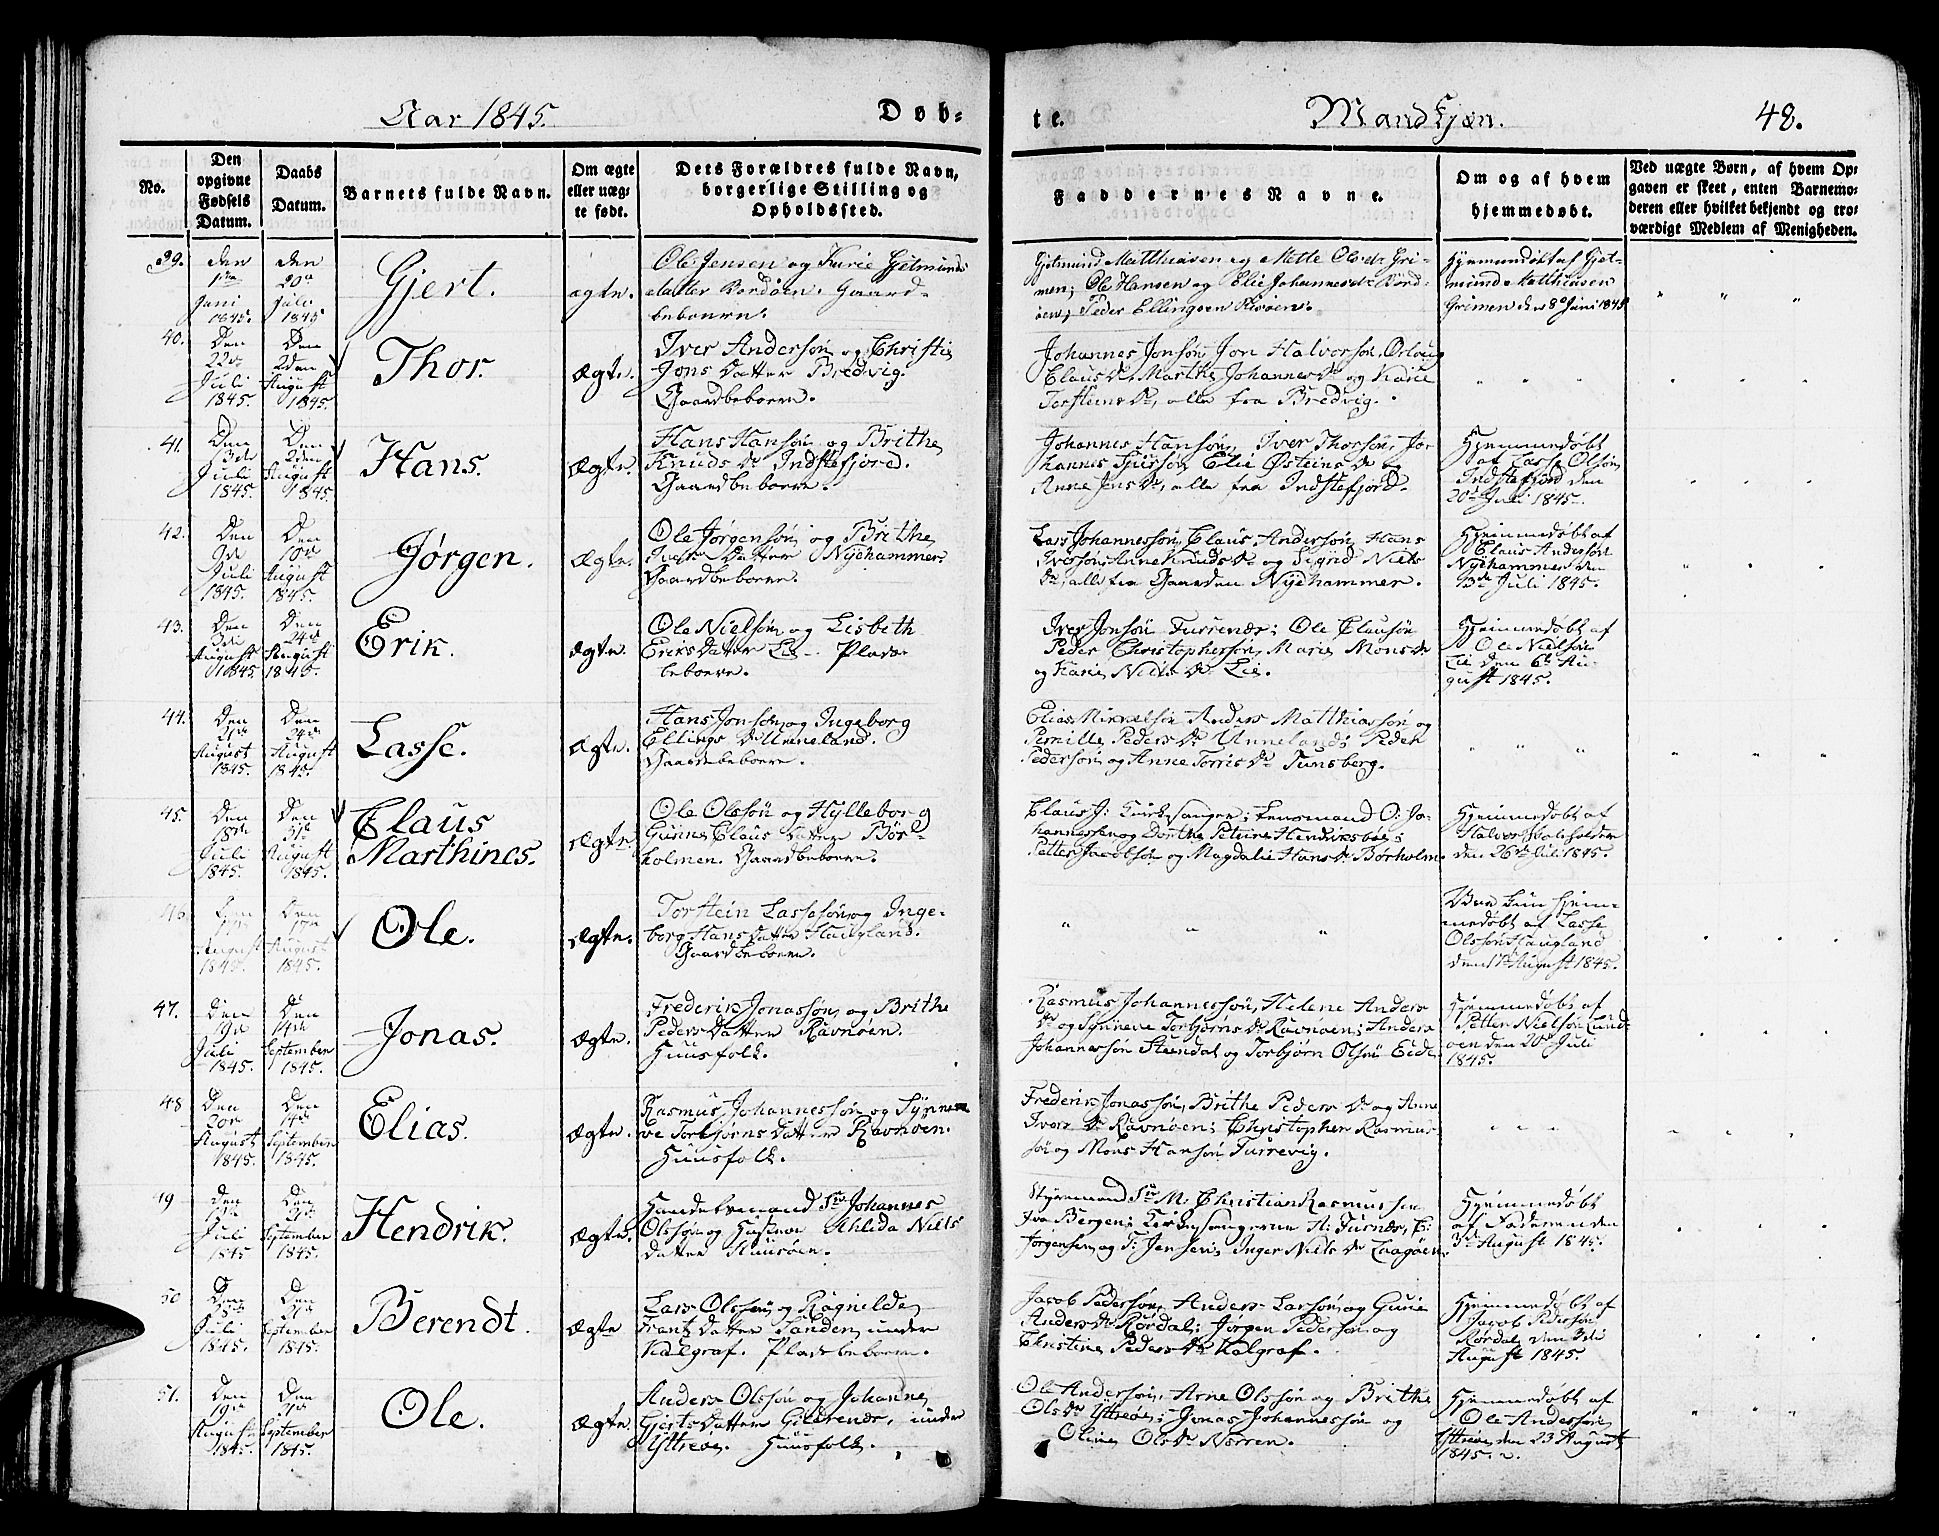 Aar 1845.
Døb-
te.
Mandkjøn.
48.
No.
Den
opgivne
Fødsels
Datum.
Daabs
Datum.
Barnets fulde Navn.
Om ægte
eller uæg-
te født.
Dets Forældres fulde Navn,
borgerlige Stilling og
Opholdssted.
Faddernes Navne.
Om og af hvem
hjemmedøbt.
Ved uægte Børn, af hvem Op-
gaven er skeet, enten Barnemo-
deren eller hvilket bekjendt og tro-
værdigt Medlem af Menigheden.
39.
den
Juni
1845.
den
20de
Juli
1845
Gjert.
ægte.
Ole Jensen og Gjetmunds
datter Gaard-
beboere.
Gjetmund Matthiasen og Mette Olsdr Gri-
men; Ole Hansen og Elie Johannesdr
Peder Ellingsen Risøen.
Hjemmedøbt af Gjet-
mund Matthiasen
Grimen den 8de Juni 1845
40.
Den
22de
Juli
1845.
Den
2den
August
1845.
Thor.
Ægte.
Iver Andersøn og Christi
Jons Datter Bredvig.
Gaardbeboere.
Johannes Jonsøn, Jon Halvorsøn,
Claus Dr, Marthe Johannes Dr og Kari
Torsteins Dr, alle fra Bredvig.
41.
Den
13de
Juli
1845.
Den
2den
August
1845.
Hans.
Ægte.
Hans Hansøn og Brithe
Knuds Dr Indstefjord.
Gaardbeboere.
Johannes Hansøn, Iver Thorsøn, Jo-
hannes Elie Østeins Dr og
Anne Jens Dr, alle fra Indstefjord.
Hjemmedøbt
af Lasse Olsøn
Indstefjord den
20de Juli 1845.
42.
Den
9de
Juli
1845.
Den
10de
August
1845.
Jørgen.
Ægte.
Ole Jørgensøn og Brithe
Datter Nyehammer.
Gaardbeboere.
Lars Johannessøn, Claus Andersøn, Hans
Anne Knuds Dr og Sigrid Niels
Dr, alle fra Gaarden Nyehammer.
Hjemmedøbt af
Claus Andersøn
Nyehammer den
13de Juli 1845.
43.
Den
3de
August
1845.
Den
24de
August
1845.
Erik.
Ægte.
Ole Nielsøn og Lisbeth
Eriks Datter Lie. Plads-
beboere.
Iver Jonsøn Furrenæs; Ole Clausøn
Peder Christophersøn, Mari Mons Dr
og Kari Niels Dr Lie.
Hjemmedøbt af
Ole Nielsøn
Lie den 6te Au-
gust 1845.
44.
Den
21de
August
1845.
Den
24de
August
1845.
Lasse.
Ægte.
Hans Jonsøn og Ingeborg
Ellings Dr Unneland.
Gaardbeboere.
Elias Mikkelsøn Anders Matthiassøn og
Pernille Peders Dr Unneland; Peder
Pedersøn og Anne Torris Dr Tunsberg.
45.
Den
18de
Juli
1845.
Den
31te
August
1845.
Claus
Marthines.
Ægte.
Ole Olssøn og Hylleborg
Gunne Claus Datter Bør-
holmen. Gaardbeboere.
Claus J: Kirkesanger; Lensmand O: Jo-
hannessen og Dorthe Petrine
Petter Jacobsøn og Magdali Hans Dr Børholm.
Hjemmedøbt af
Halvor
den 26de Juli 1845.
46
August
1845.
Den
17de
August
1845.
Ole.
Ægte.
Torstein Lassesøn og Inge-
borg Hans Datter Haugland.
Gaardbeboere.
Hjem-
medøbt af Lasse
Olssøn Haugland
den 17de August 1845.
47.
Den
19de
Juli
1845.
Den
14de
September
1845.
Jonas.
Ægte.
Frederik Jonassøn og Brithe
Peders Datter Ravnøen.
Huusfolk.
Rasmus Johannessøn, Helene Anders
Dr og Synneve Torbjørns Dr Ravnøen; Anders
Johannessøn Steendal og Torbjørn Olsøn Eide.
Hjemmedøbt af
Petter Nielsøn Lund-
øen den 20de Juli
1845.
48
Den
20de
August
1845.
Den
14de
September
1845.
Elias.
Ægte.
Rasmus Johannessøn og Synne-
ve Torbjørns Datter Ravnøen.
Huusfolk.
Frederik Jonassøn, Brithe Peders Dr og Anne
Ivers Dr Ravnøen; Christopher Rasmus-
søn og Mons Hansøn Furrevig.
49
den
Juli
1845
Den
21de
September
1845.
Hendrik.
Ægte.
Handelsmand Sr Johannes
Olssøn og Hustrue Ahlida Niels
datter
Styrmand Sr M. Christian Rasmussen
fra Bergen; Kirkesangerne H: Furnæs, E:
Jørgensen og T: Jensen; Inger Niels Dr Laagøen.
Hjemmedøbt
af Faderen den
3de August 1845.
50
Den
Juli
1845.
Den
21de
September
1845.
Berendt.
Ægte
Lars Olssøn og Ragnilde
Frantz Datter Sanden, under
Kalgraf. Pladsbeboere.
Jacob Pedersøn, Anders Larsøn og Guri
Anders Dr Rørdal; Jørgen Pedersøn og
Christine Peders Dr Kalgraf.
Hjemmedøbt af
Jacob Pedersøn
Rørdal den 3de
August 1845.
51.
Den
19de
August
1845.
Den
21de
September
1845.
Ole.
Ægte.
Anders Olssøn og Johanne
Gjerts Datter Gildrenæs, under
Yttrøe. Huusfolk.
Ole Andersøn, Arne Olssøn og Brithe
Ols Dr Yttrøe; Jonas Johannessøn og
Oline Ols Dr Norren.
Hjemmedøbt af
Ole Andersøn
Yttrøe den 23 August
1845.